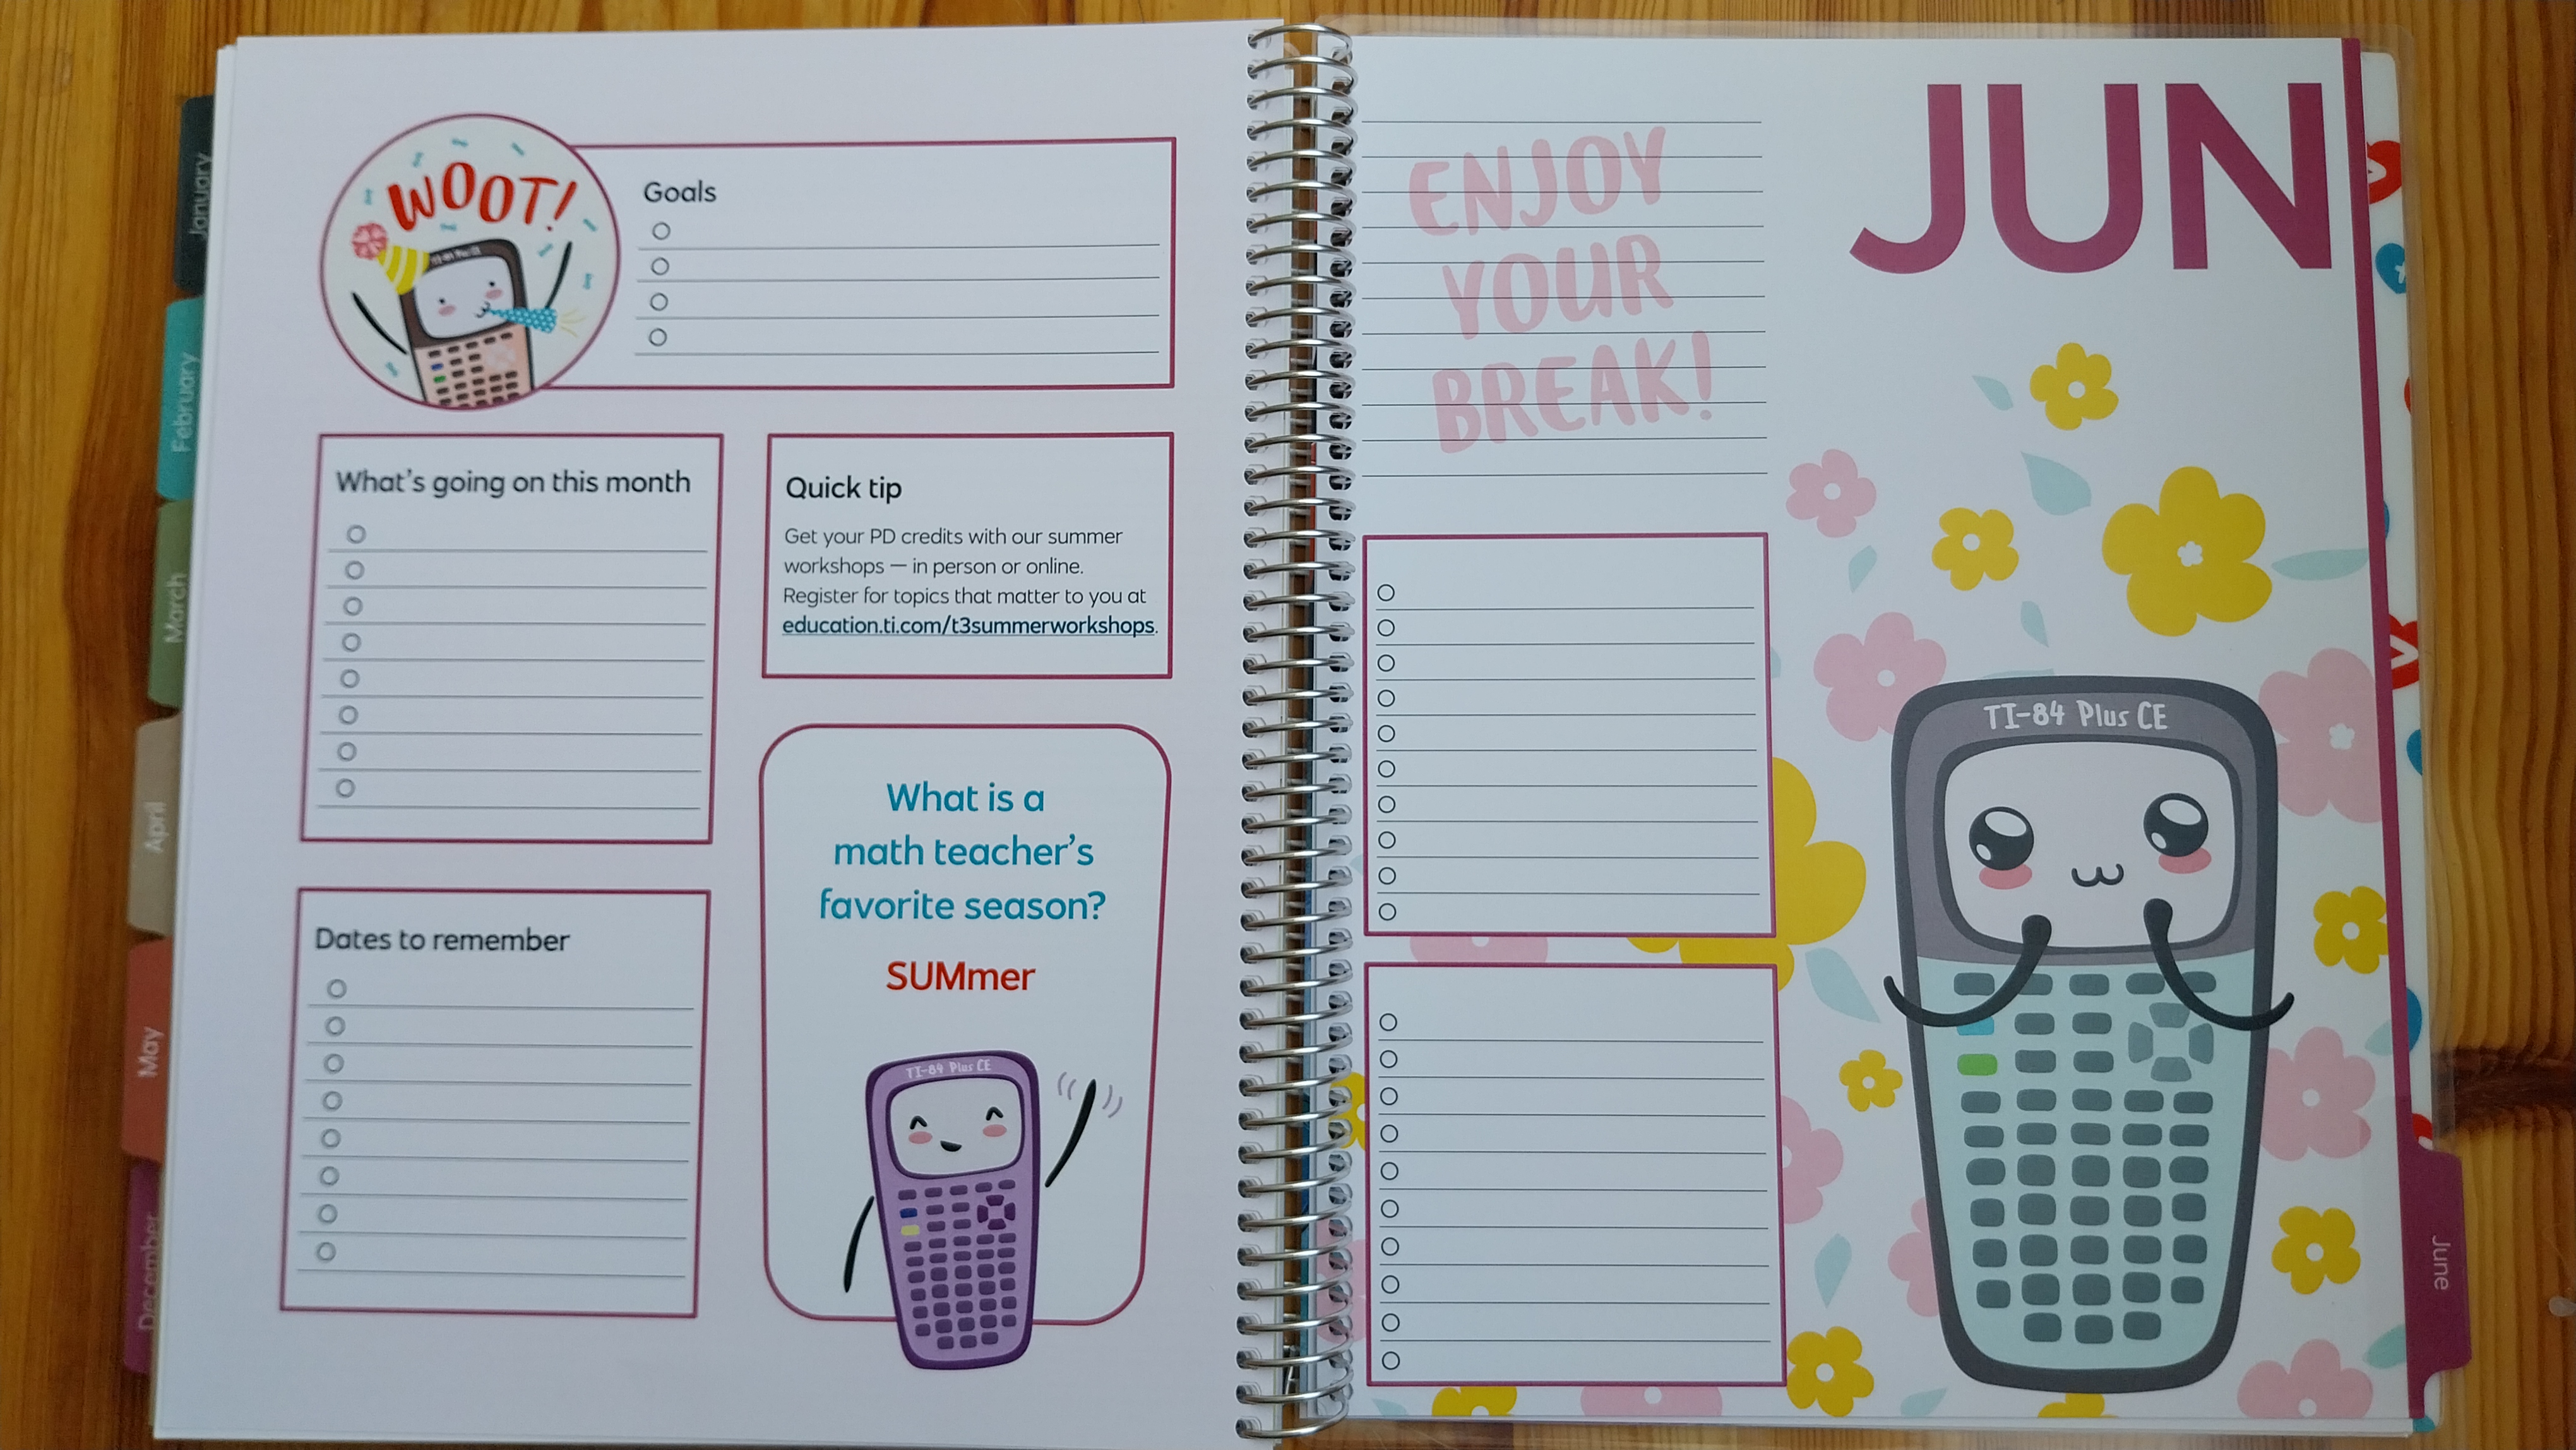 January
February
March
April
May
December
WOOT!
TI-84 Plus CE
Goals
What's going on this month
Quick tip
Get your PD credits with our summer
workshops — in person or online.
Register for topics that matter to you at
education.ti.com/t3summerworkshops.
Dates to remember
What is a
math teacher's
favorite season?
SUMmer
TI-84 Plus CE
ENJOY
YOUR
BREAK!
JUN
TI-84 Plus CE
June